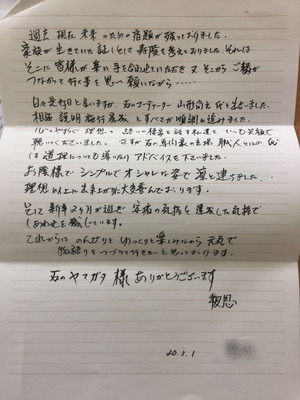 過去 現在 未来のための宿題が残っておりました。
家族が生きていた証しとして寿陵を考えておりました。それは
そこに皆様が集い手を合わせていただき 又 そこから ご縁が
つながって行く事を思い 願いながら……
石のコーディネーター 山形 氏と出会いました。
相談 説明 施行 とすべてが順調に進みました。
理想 にいつも笑顔で
聴いてくださいました。さすが石の専門家の立場 職人としての
は道理についても導いた アドバイスを下さいました。
お陰様で シンプルで オシャレな姿で凛と建ちました。
理想以上に出来上がり大変喜んでおります。
そして新年2ヶ月が過ぎ 安堵の気持と達成した気持で
しあわせを感じています。
これからは のんびりと ゆっくりと楽しみながら 元気で
物語りをつづって行きたいと思っております。
石のヤマガタ 様 ありがとうございます
報恩
20.3.1